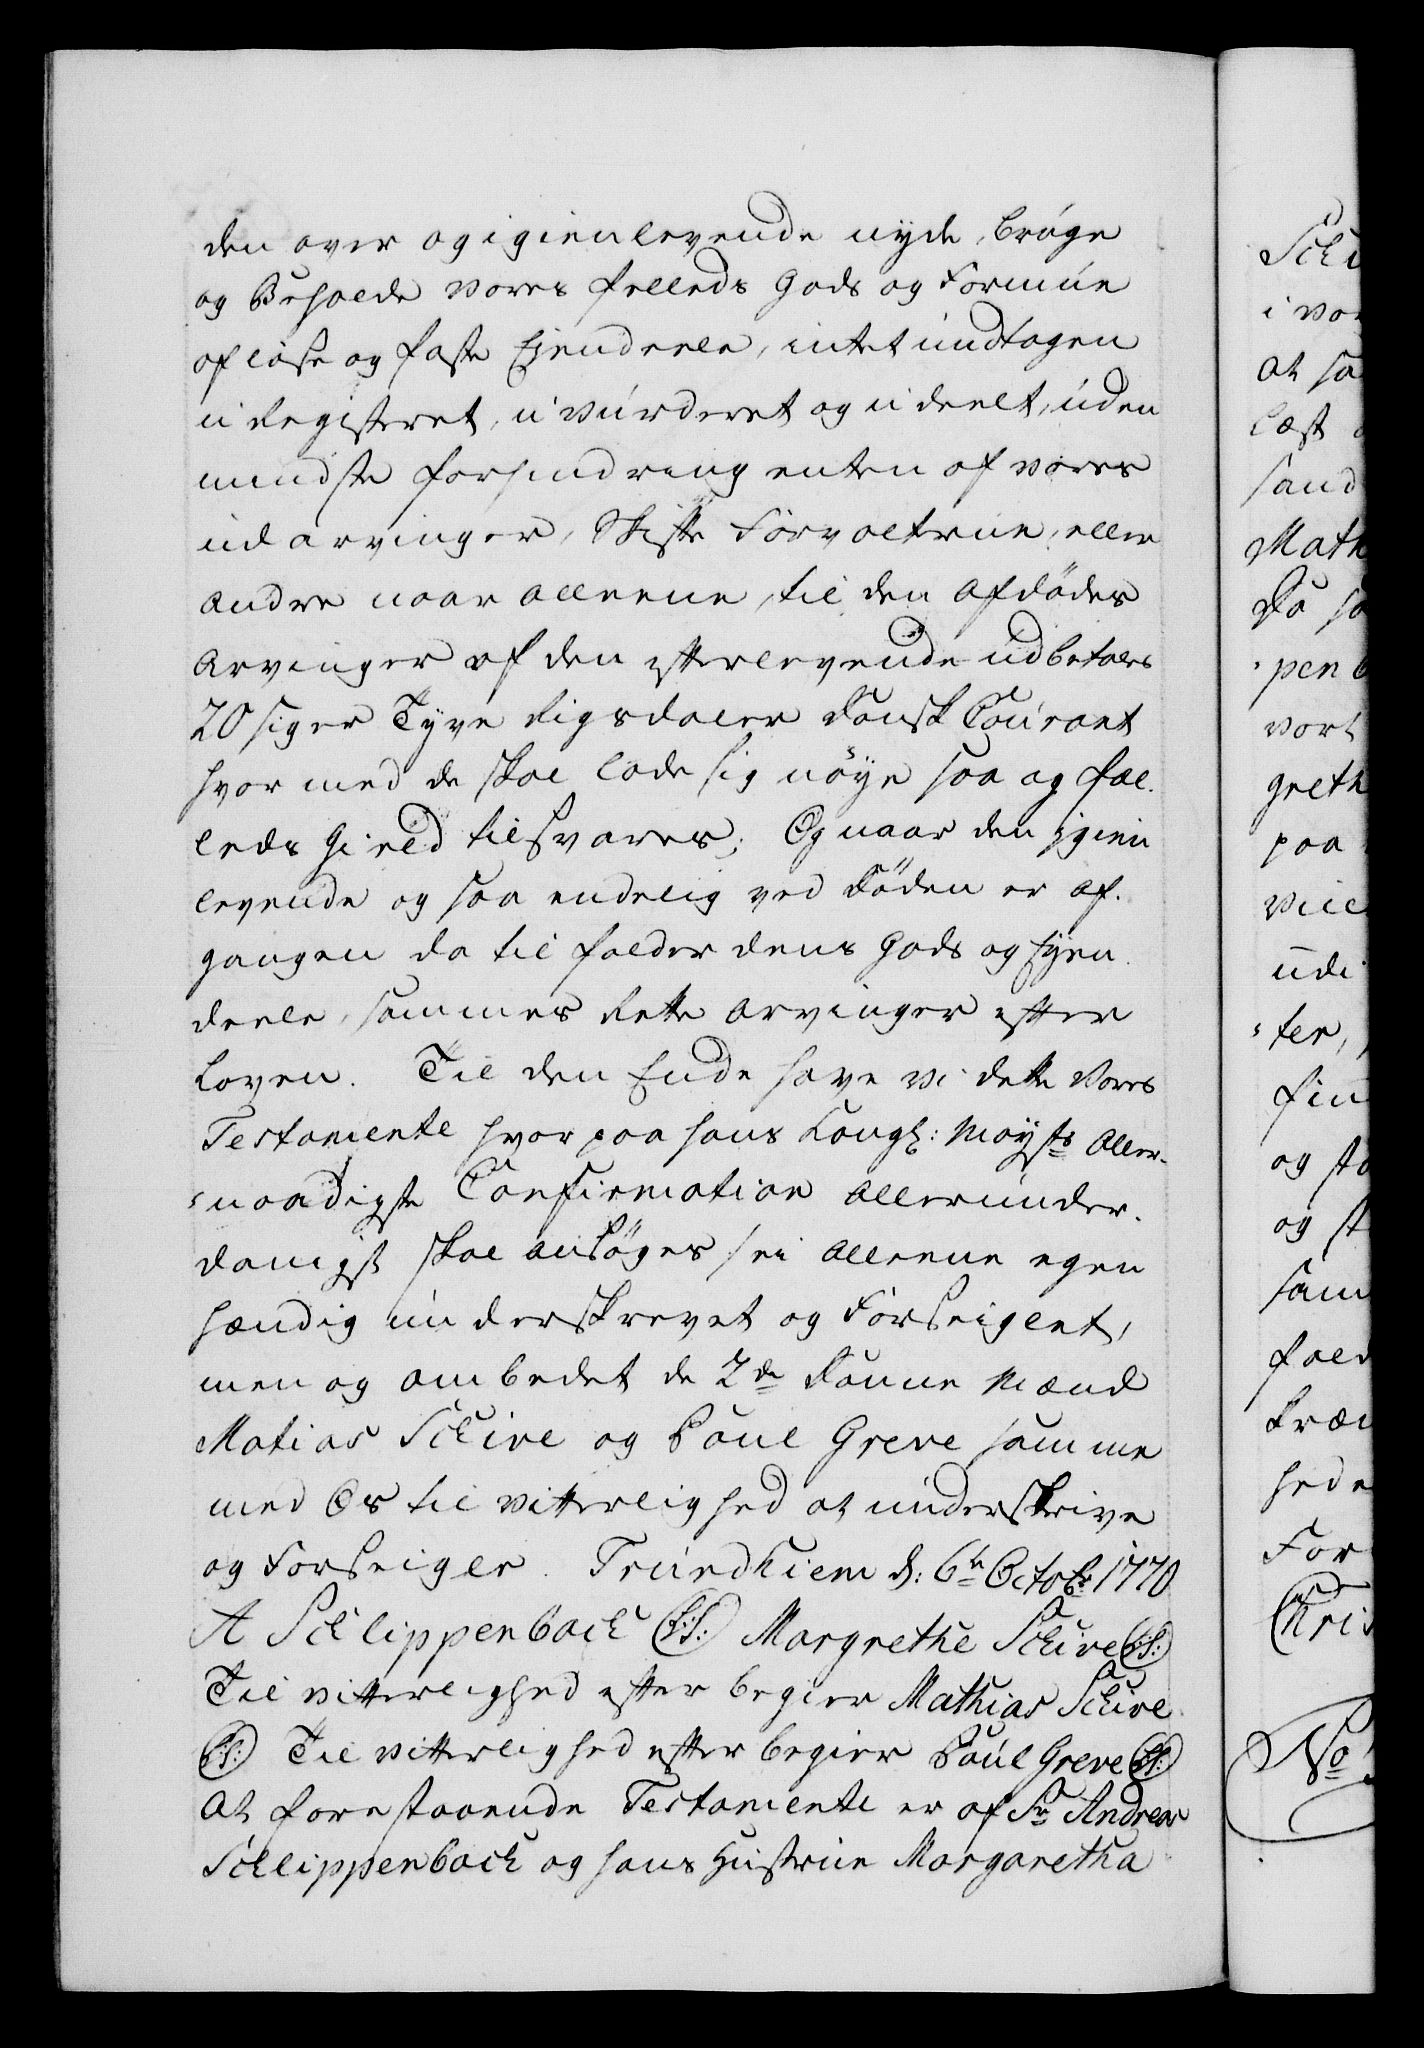 den over og igienlevende nyde, brúge
og Beholde vores felleds Gods og Formúe
af løse og faste Ejendeele, intet úndtagen
ú Registeret, ú vúrderet og ú deelt, úden
mindste forhindring enten af vores
úd arvinger, Skifte Forvaltere, eller
andre naar alleene, til den afdødes
Arvinger af den efterlevende údbetales
20 siger Tyve Rigsdaler Dansk Coúrant
hvor med de skal lade sig nøye saa og fæl-
leds Gield tilsvares; Og naar den igien
levende og saa endelig ved Døden er af-
gangen da til falder dens Gods og Eyen
deele, sammes Rette Arvinger efter
Loven. Til den Ende have vi dette Vores
Testamente hvor paa hans Kongl: Mayts Aller-
naadigste Confirmation allerúnder-
danigst skal ansøges, ei alleene egen
hændig únderskrevet og Forseiglet,
men og ombedet de 2de Danne Mænd
Matias Schive og Poúl Greve samme
med Os til vitterlighed at únderskrive
og Forseigle. Trúndhiem d: 6te Octobr 1770
A Schlippenbach (L:S:) Margrethe Schive (L:S:)
Til vitterlighed efter begier Mathias Schive
(L:S:) Til vitterlighed efter begier Poúl Greve (L:S:)
At forestaaende Testamente er af Sr Andreas
Schlippenbach og hans Hústrúe Margaretha
Schi
i vor
at sa
læst
sand
Math
Da sa
penb
vort
greth
paa
vill
údi
ter,
fin
og sta
og st
sam
fald
Kræn
hede
For
Chris
No